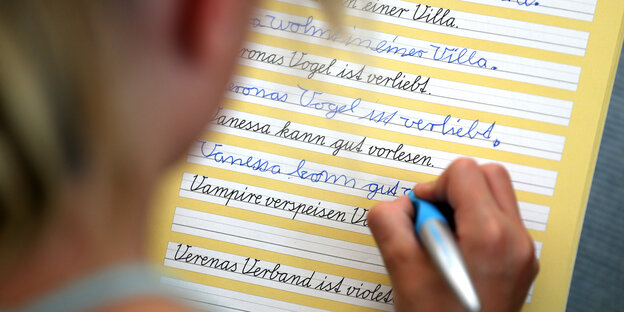 einer Villa.
wohne in einer Villa.
Veronas Vogel ist verliebt.
Veronas Vogel ist verliebt.
Vanessa kann gut vorlesen.
Vanessa kann gut
Vampire verspeisen
Verenas Verband ist violett